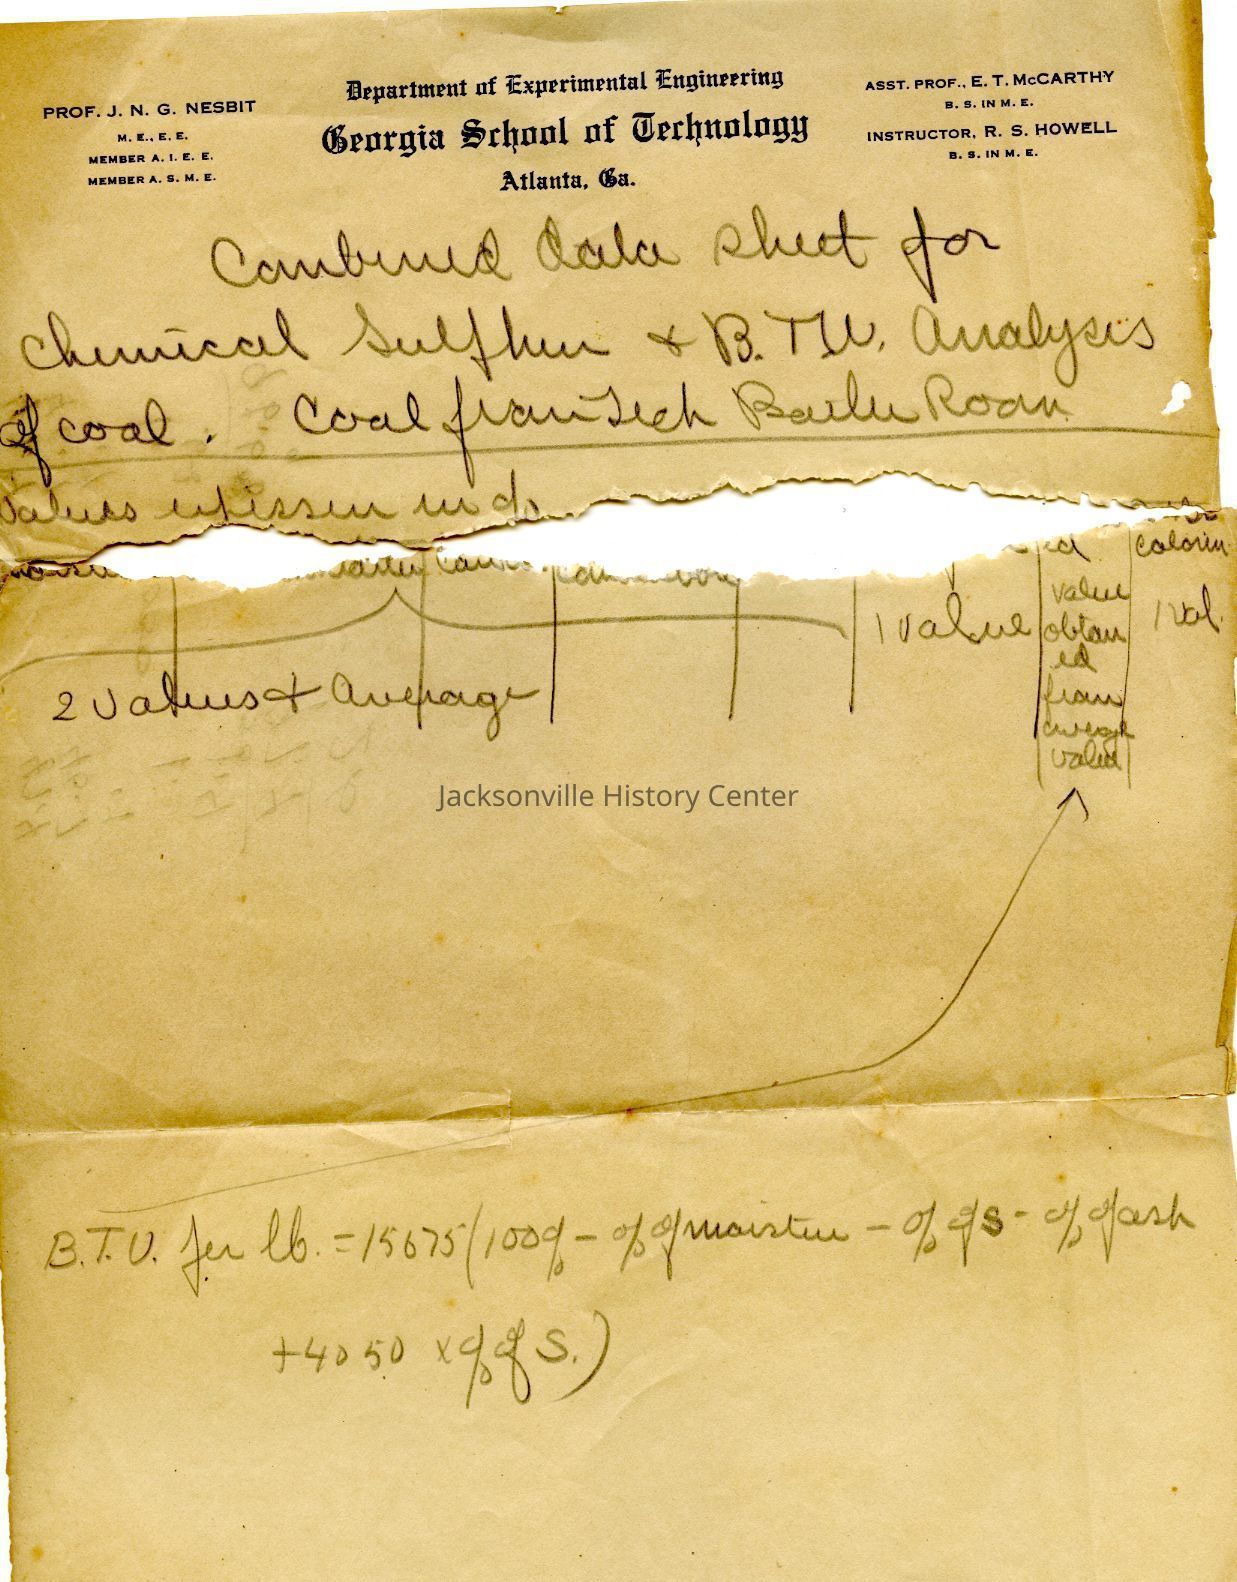 PROF. J. N. G. NESBIT
M. E., E. E.
MEMBER A. I. E. E.
MEMBER A. S. M. E.
Department of Experimental Engineering
Georgia School of Technology
Atlanta, Ga.
ASST. PROF., E. T. McCARTHY
B. S. IN M. E.
INSTRUCTOR, R. S. HOWELL
B. S. IN M. E.
Combined data sheet for
Chemical Sulphur & B.T.U. Analysis
of coal. Coal from Tech Boiler Room
Values in %
ed
value
obtain
ed
from
average
value
colorim
1 val.
1 value
2 values & Average
Jacksonville History Center
B.T.U. per lb. = 15675 (100% - % of moisture - % of S - % of ash
+ 4050 x % of S.)